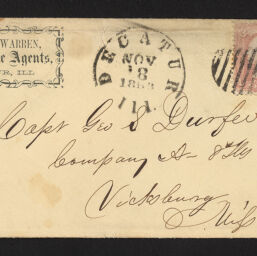 WARREN,
e Agents.
UR, ILL
DECATUR
NOV
18
1863
Ill.
Capt Geo S Durfee
Company A 8th Ills
Vicksburg
Miss